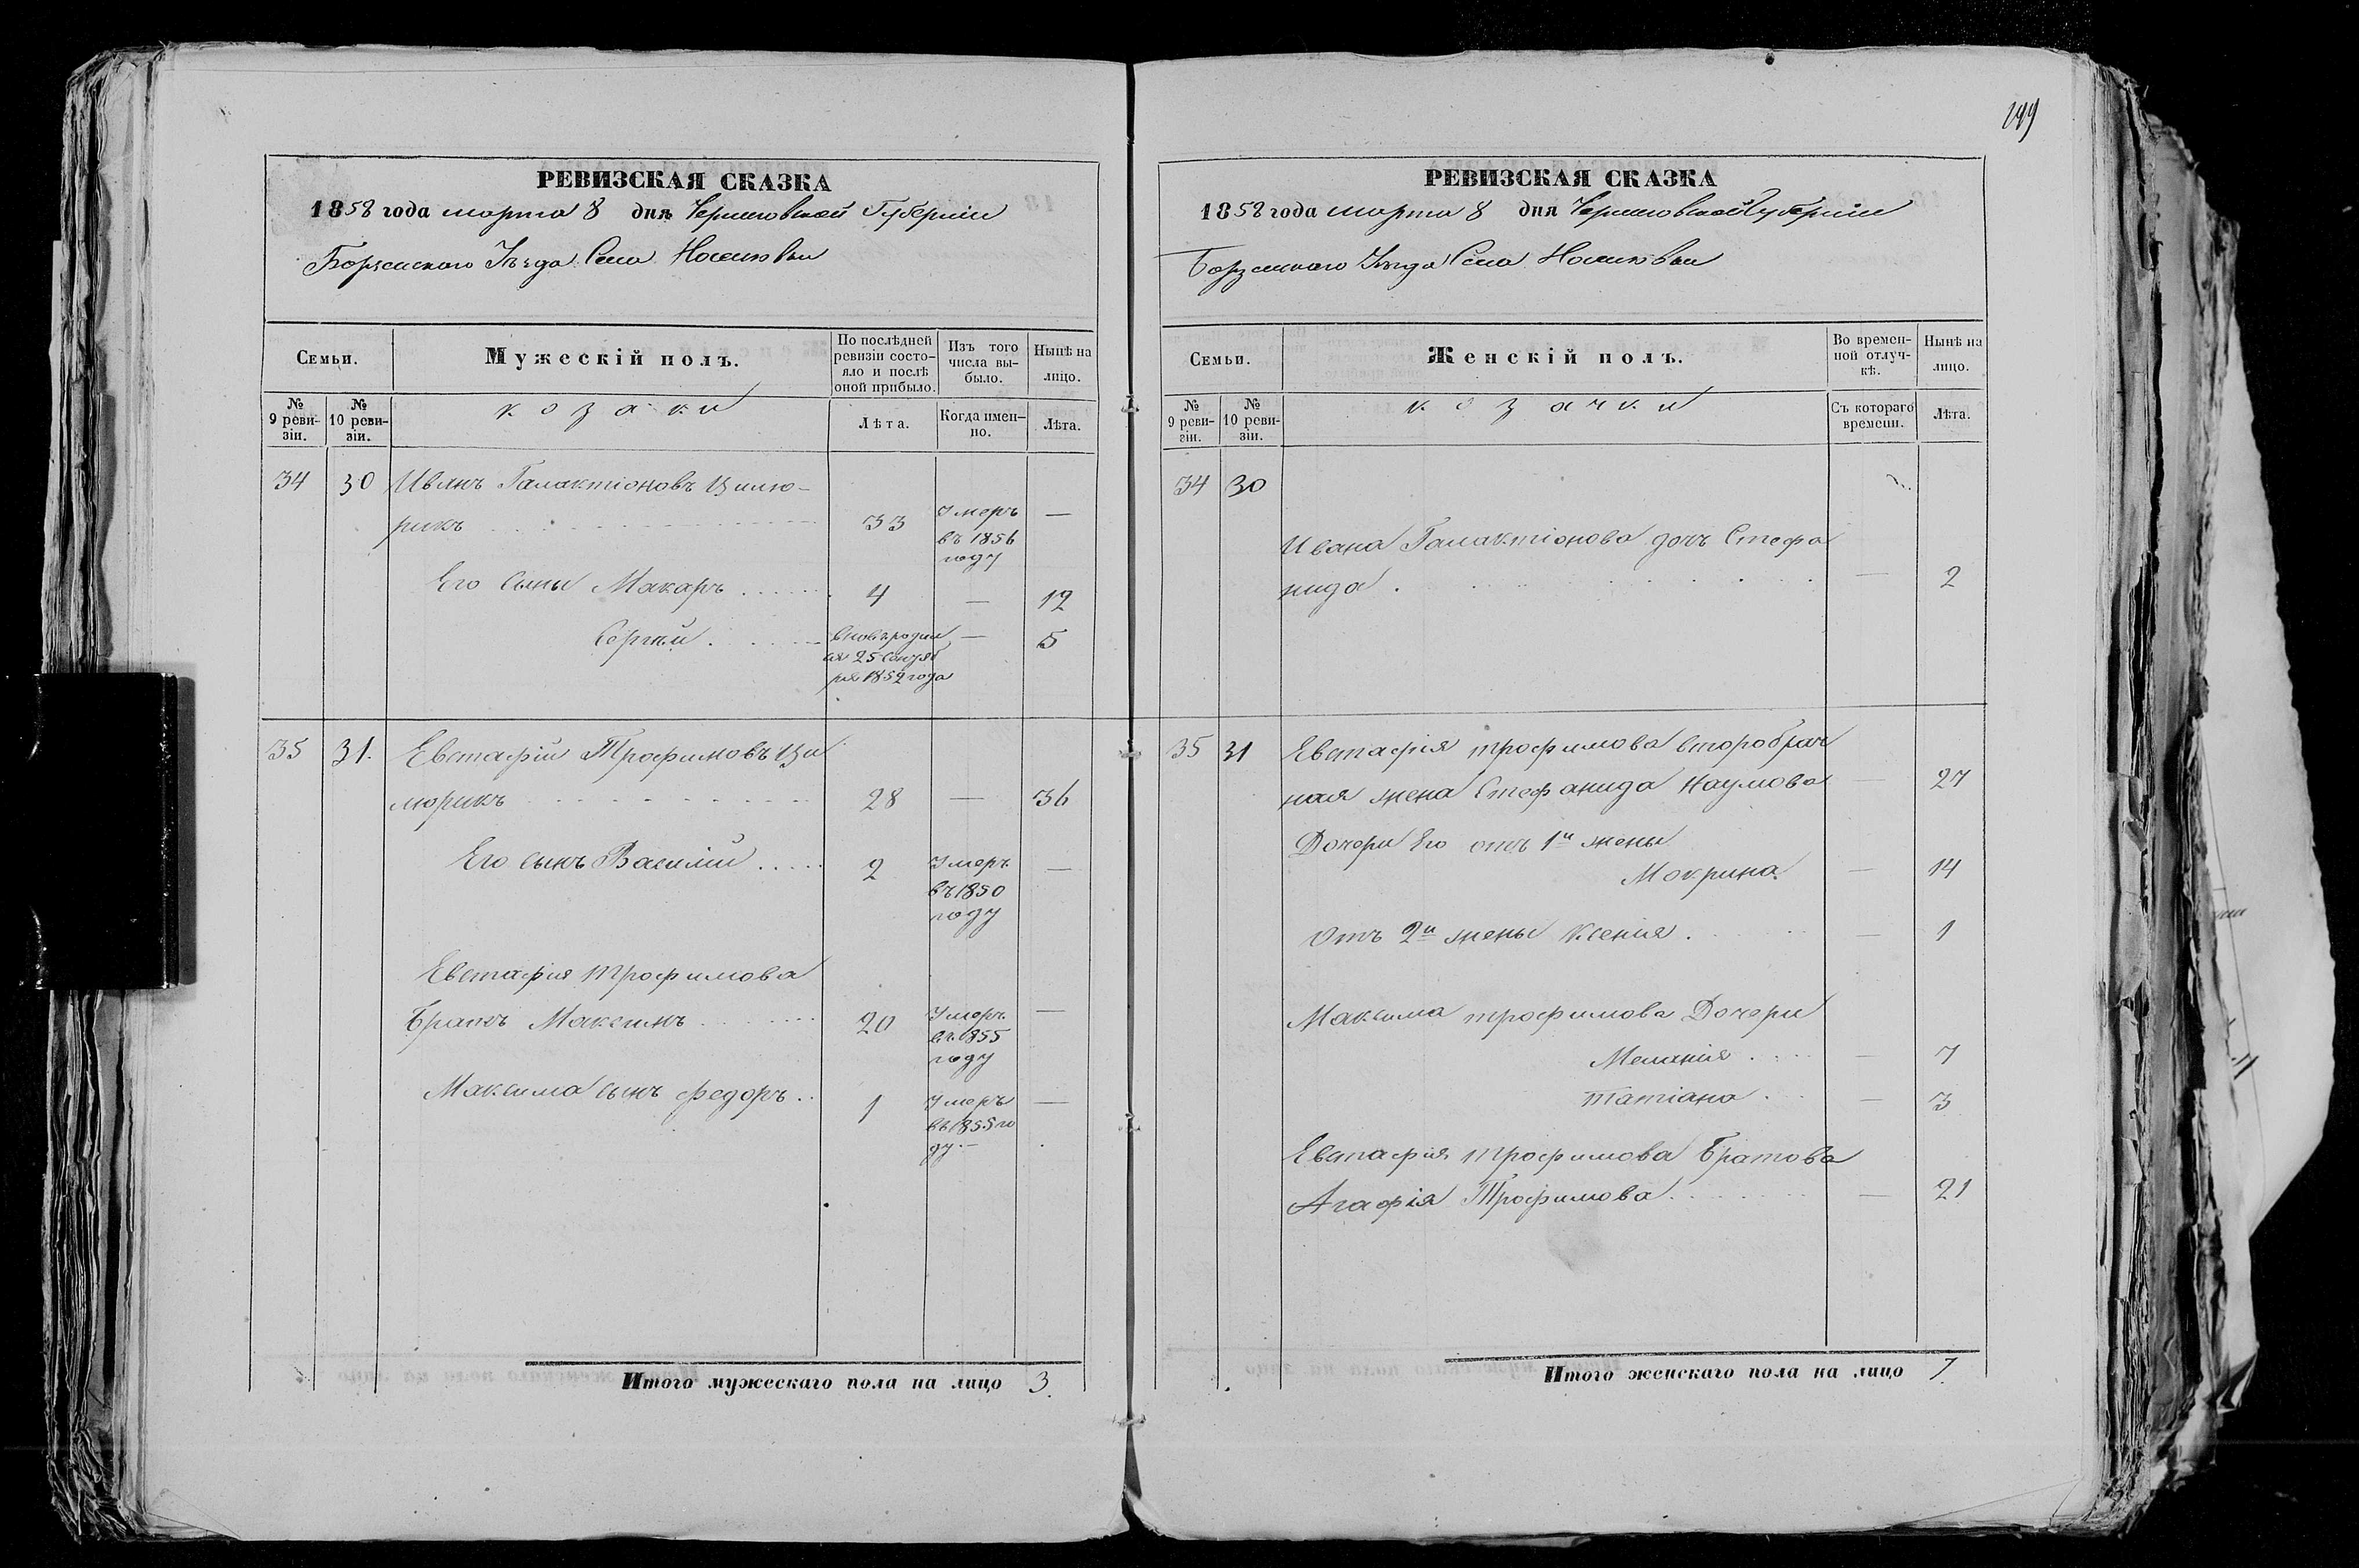 199
РЕВИЗСКАЯ СКАЗКА
1858 года марта 8 дня Черниговской Губерніи
Борзенского Уѣзда Села Носиловки
Семьи.
Мужескій полъ.
По послѣдней ревизіи состо-
яло и послѣ оной прибыло.
Изъ того числа вы-
было.
Нынѣ на лицо.
№ 9 реви-
зіи.
№ 10 реви-
зіи.
козаки
Лѣта.
Когда имен-
но.
Лѣта.
34 30 Иванъ Галактіоновъ Цилю-
рикъ 33 Умеръ въ 1856 году —
Его сыны Макаръ 4 — 12
Сергѣй вновь родил
ся 25 Сентяб
ря 1852 года — 5
35 31. Евстафій Трофимовъ Ци
люрикъ 28 — 36
Его сынъ Василій 2 Умеръ въ 1850 году —
Евстафія Трофимова
Братъ Максимъ 20 Умеръ въ 1855 году —
Максима сынъ Федоръ 1 Умеръ въ 1855 го
ду. —
Итого мужескаго пола на лицо 3.
РЕВИЗСКАЯ СКАЗКА
1858 года марта 8 дня Черниговской Губерніи
Борзенского Уѣзда Села Носиловки
Семьи.
Женскій полъ.
Во времен-
ной отлуч-
кѣ.
Нынѣ на лицо.
№ 9 реви-
зіи.
№ 10 реви-
зіи.
козачки
Съ котораго времени.
Лѣта.
34 30
Ивана Галактіонова дочь Стефа
нида — 2
35 31 Евстафія Трофимова второбрач
ная жена Стефанида Наумова — 27
Дочери Его отъ 1й жены
Мокрина — 14
Отъ 2й жены Ксенія — 1
Максима Трофимова Дочери
Меланія — 7
Татіана — 3
Евстафія Трофимова Братова
Агафія Трофимова — 21
Итого женскаго пола на лицо 7.